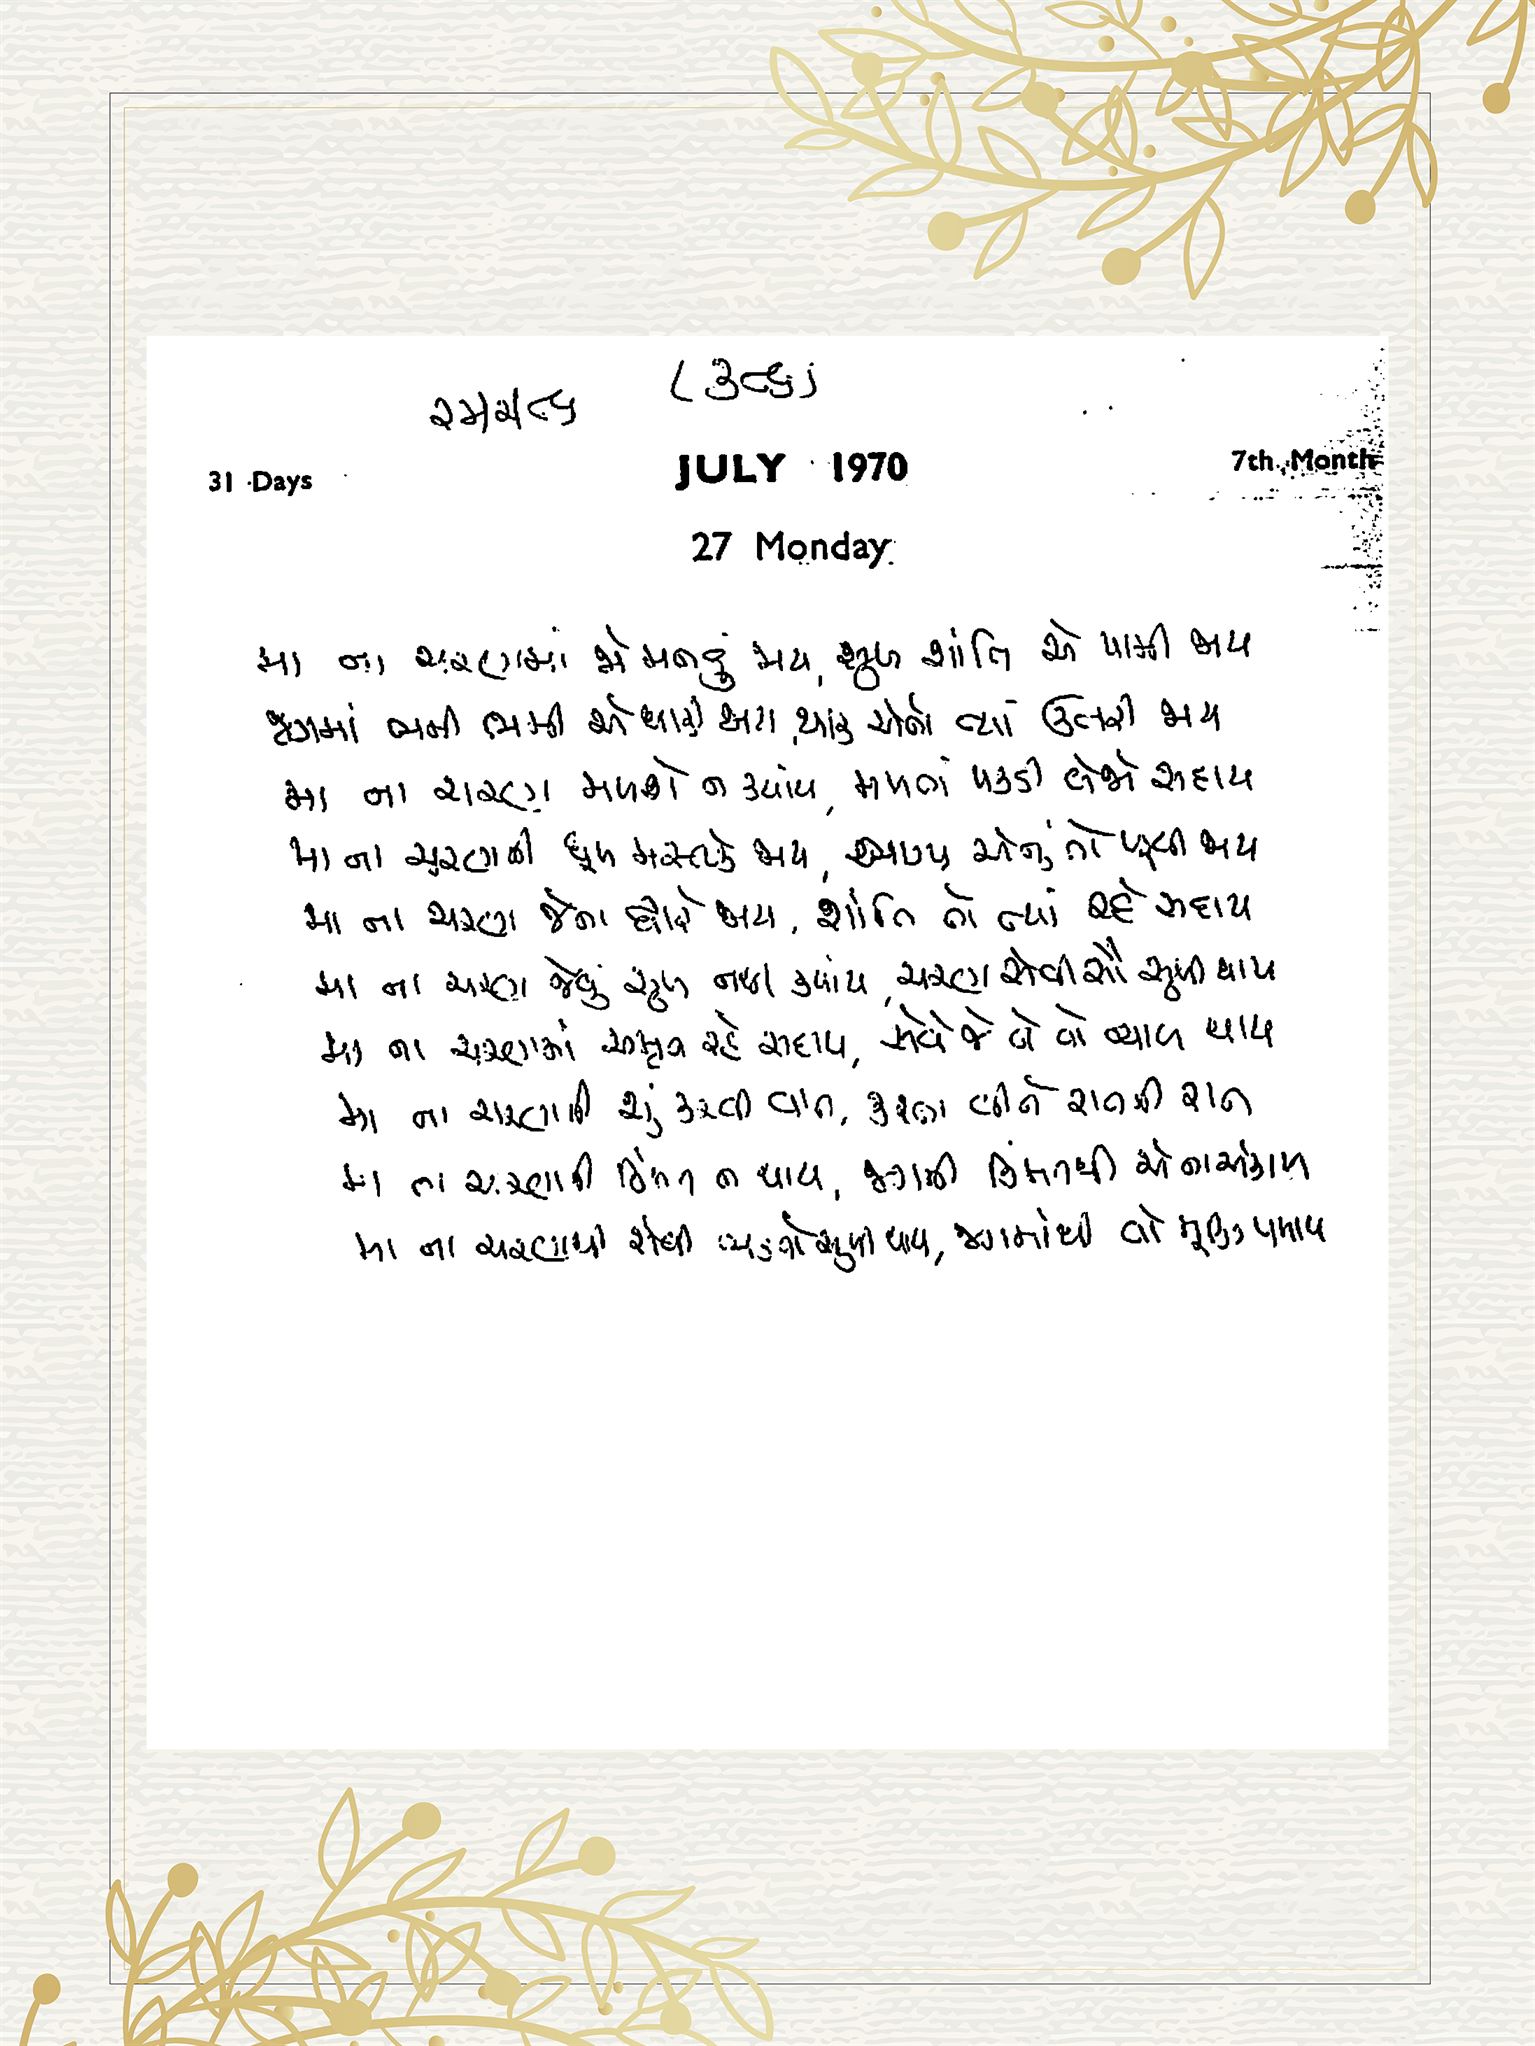 (૩૮૬)
31 Days JULY 1970 7th Month
27 Monday
મા ના ચરણમાં જો મનડું જાય, સુખ શાંતિ એ પામી જાય
જગમાં ભમી ભમી એ થાકી જાય, થાક એનો ત્યાં ઉતરી જાય
મા ના ચરણ મળશે ન ક્યાંય, મળતાં પકડી લેજો સદાય
મા ના ચરણની ધૂળ મસ્તકે જાય, એનું તો ખૂલી જાય
મા ના ચરણ જેના જાય, શાંતિ તો ત્યાં રહે સદાય
મા ના ચરણ જેવું સુખ નથી ક્યાંય, ચરણ સેવી સૌ સુખી થાય
મા ના ચરણમાં અમૃત રહે સદાય, સેવે જે તે તો ન્યાલ થાય
મા ના ચરણની શું કરવી વાત,
મા ના ચરણની કિંમત ન થાય, જગની કિંમતથી એ ના અંકાય
મા ના ચરણથી સુખી થાય, જગમાંથી તો મુક્તિ પમાય